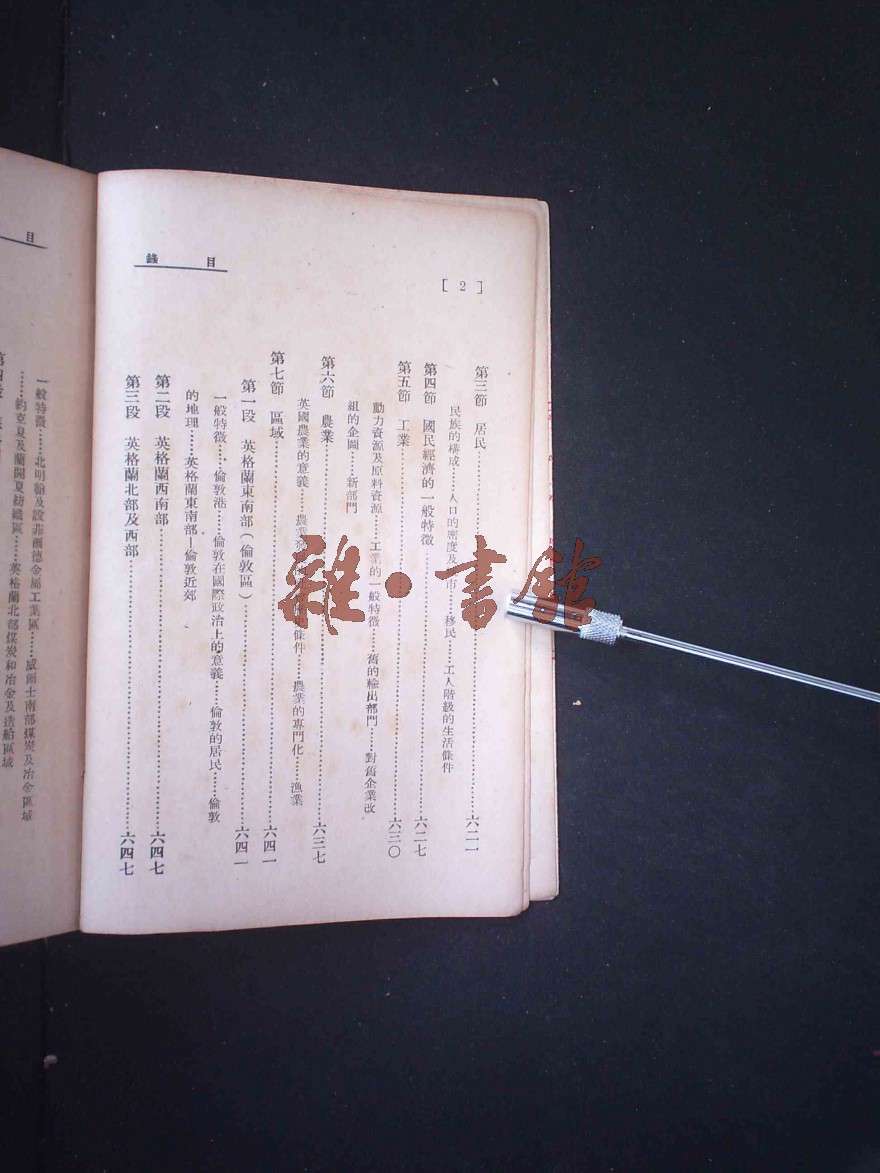 目錄
[2]
第三節 居民……六二一
民族的構成……人口的密度及 市……移民……工人階級的生活條件
第四節 國民經濟的一般特徵……六二七
第五節 工業……六三〇
動力資源及原料資源……工業的一般特徵……舊的輸出部門……對舊企業改
組的企圖……新部門
第六節 農業……六三七
英國農業的意義……農業 條件……農業的專門化……漁業
第七節 區域……六四一
第一段 英格蘭東南部(倫敦區)……六四一
一般特徵……倫敦港……倫敦在國際政治上的意義……倫敦的居民……倫敦
的地理……英格蘭東南部—倫敦近郊
第二段 英格蘭西南部……六四七
第三段 英格蘭北部及西部……六四七
目
一般特徵……北明翰及設菲爾德金屬工業區……威爾士南部煤炭及冶金區域
……約克夏及蘭開夏紡織區……英格蘭北部煤炭和冶金及造船區域
雜·書館